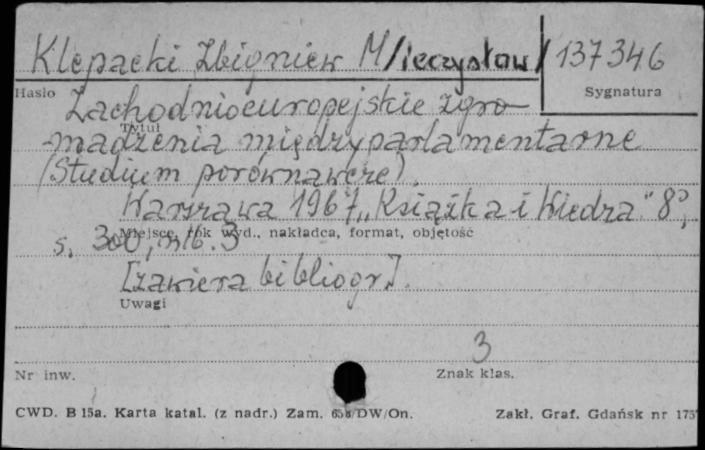 Klepacki Zbigniew M/ieczysław/ 137346
Hasło
Sygnatura
Zachodnioeuropejskie zgro-
Tytuł
madzenia międzyparlamentarne
(Studium porównawcze).
Warszawa 1967 „Książka i Wiedza." 8°,
Miejsce, rok wyd., nakładca, format, objętość
s. 300, nlb. 3
[zawiera bibliogr.].
Uwagi
3
Nr inw.
Znak klas.
CWD. B 15a. Karta katal. (z nadr.) Zam. DW/On.
Zakł. Graf. Gdańsk nr